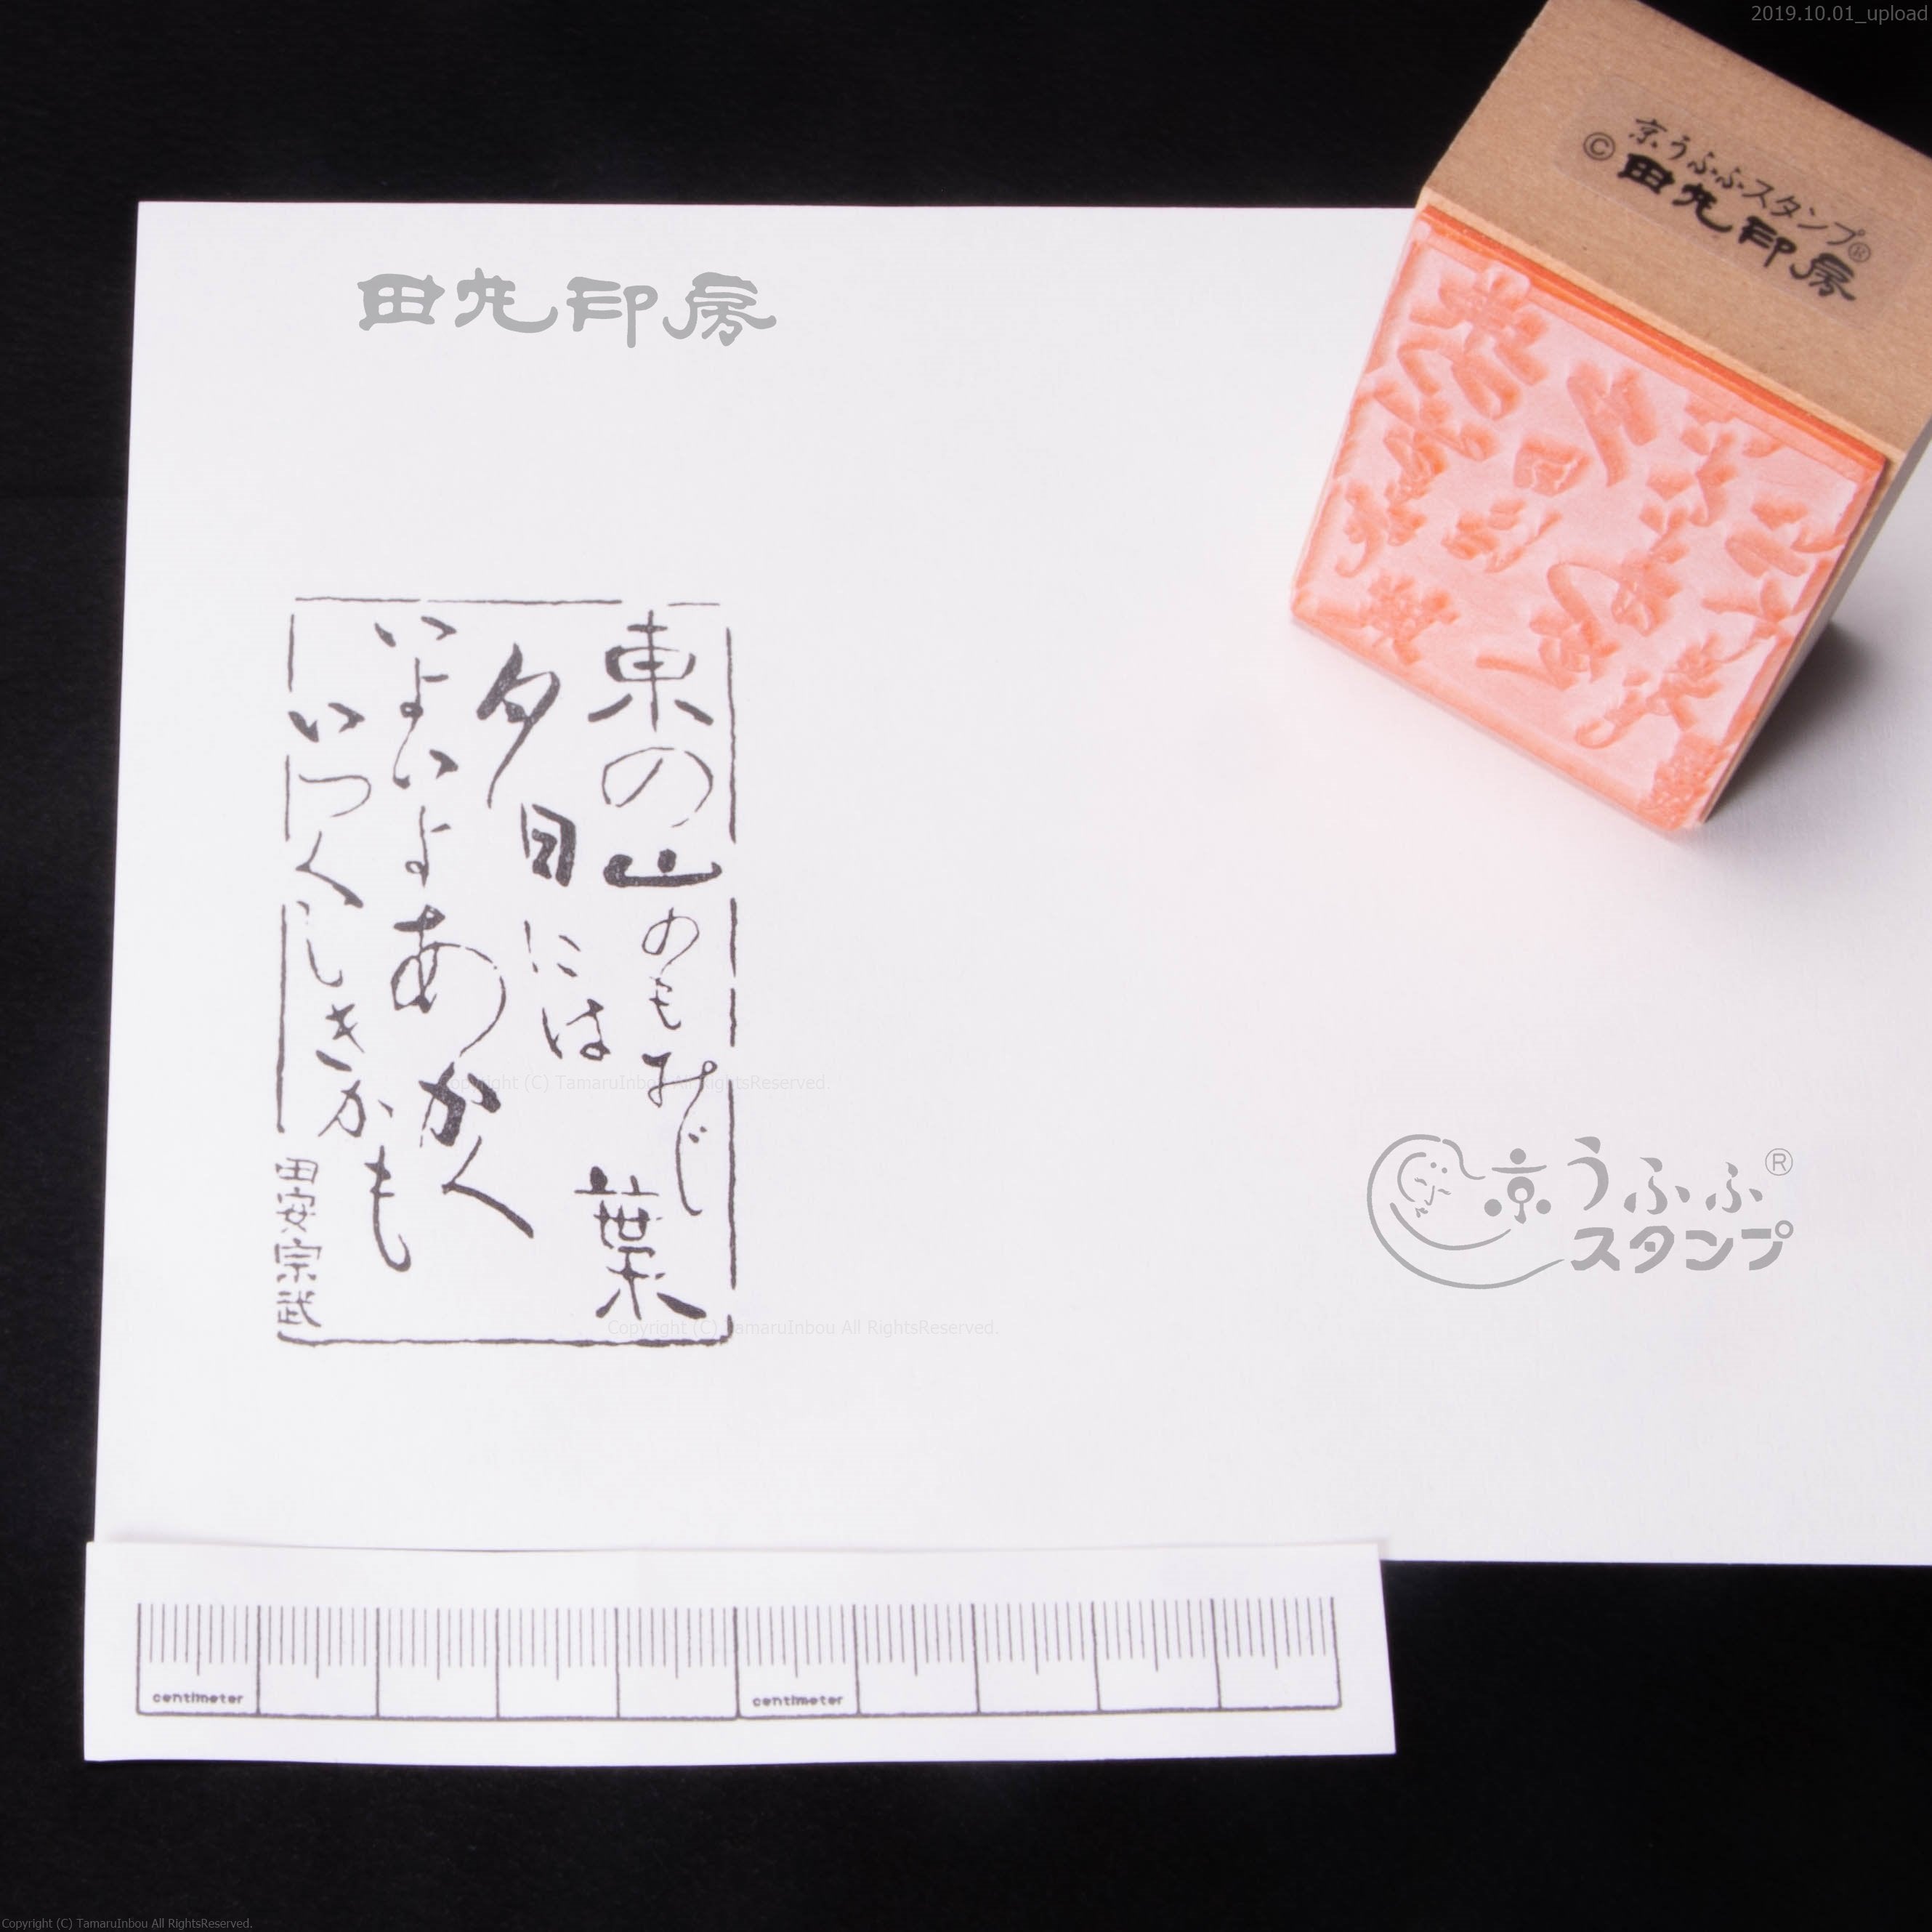 2019.10.01_upload
京うふふスタンプ®
©田丸印房
田丸印房
東の山のもみじ葉
夕日には
いよいよあかく
いつくしきかも
田安宗武
Copyright (C) TamaruInbou All RightsReserved.
京うふふ®
スタンプ
Copyright (C) TamaruInbou All RightsReserved.
centimeter centimeter
Copyright (C) TamaruInbou All RightsReserved.